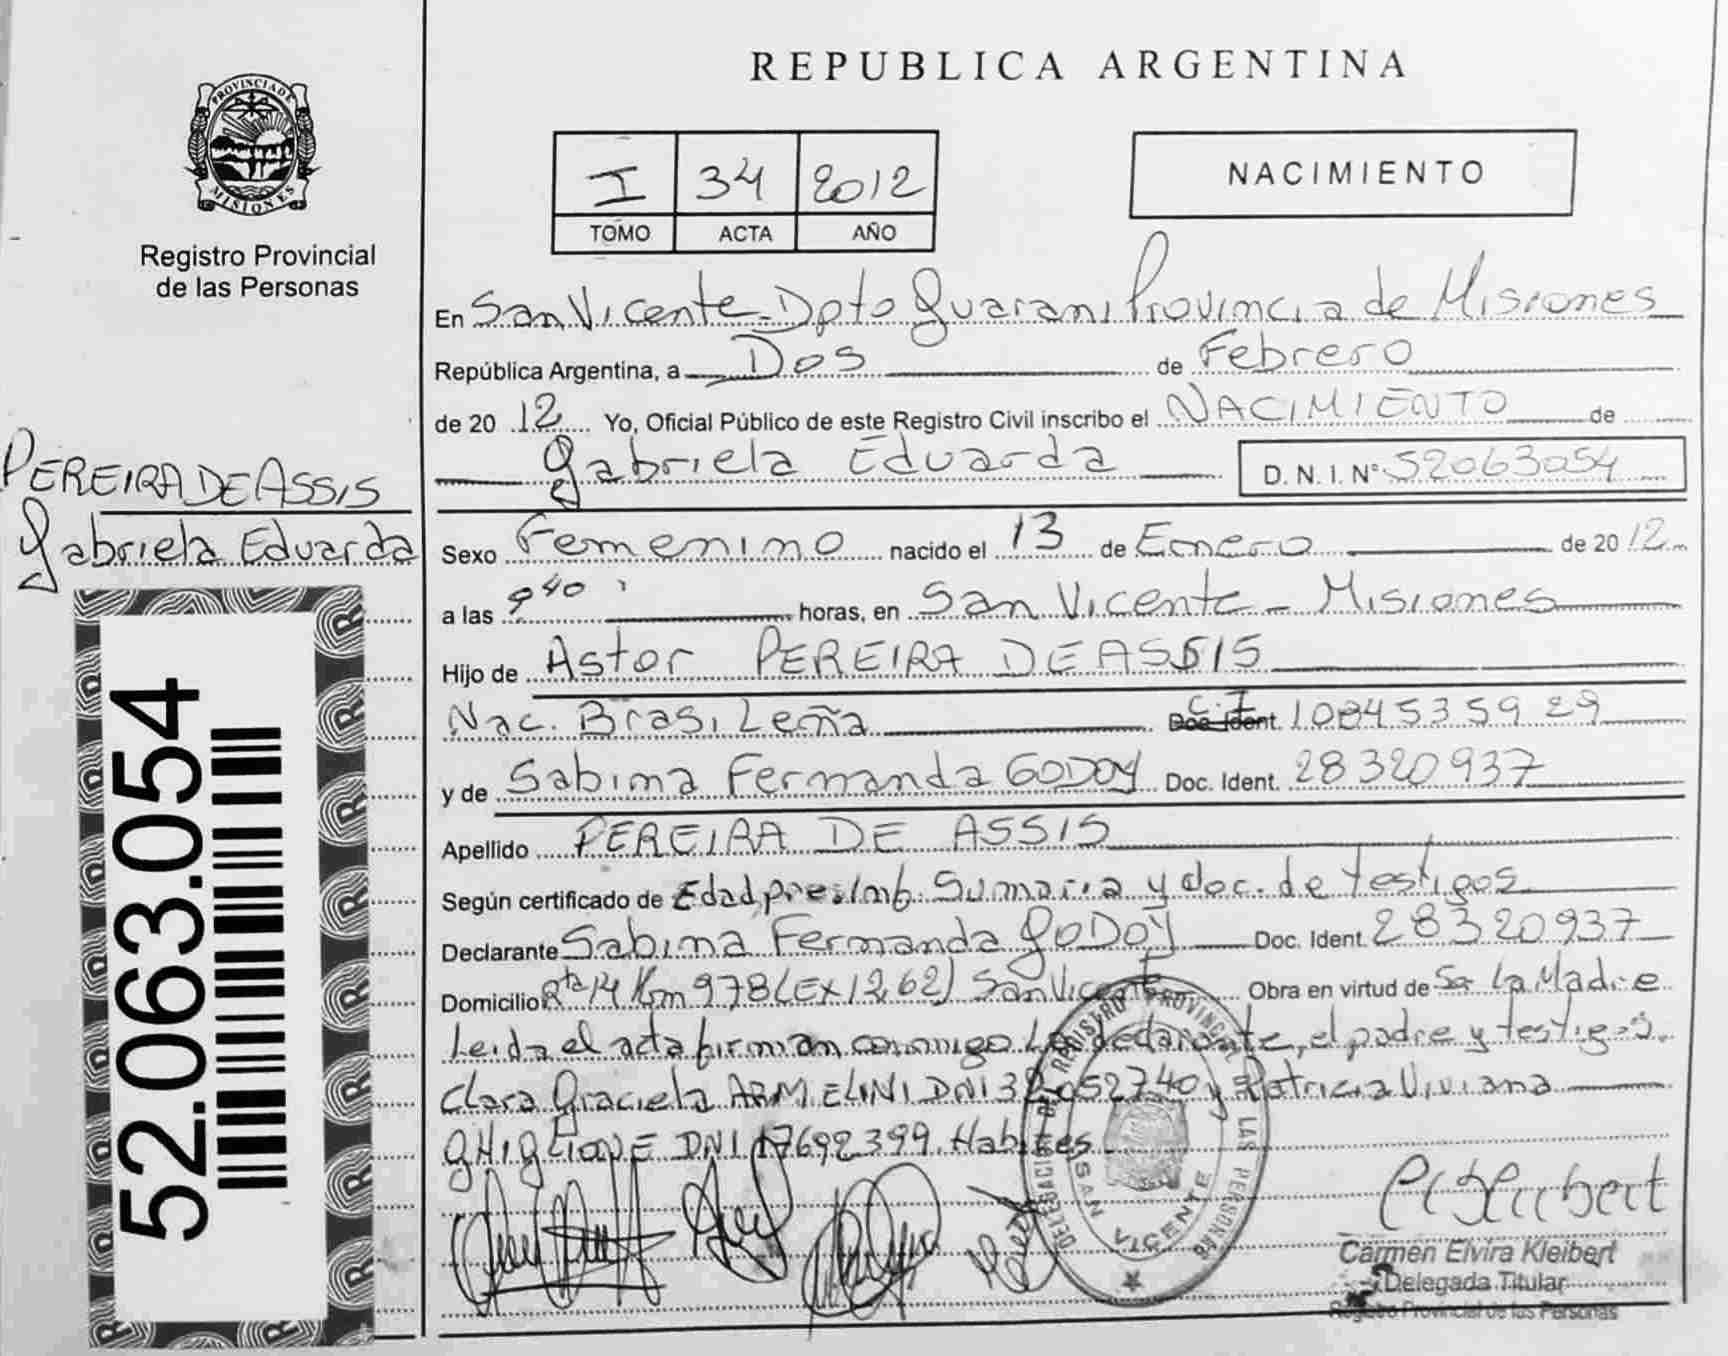 PROVINCIA DE
MISIONES
Registro Provincial
de las Personas
PEREIRA DE ASSIS
Gabriela Eduarda
52.063.054
REPUBLICA ARGENTINA
I 34 2012
TOMO ACTA AÑO
NACIMIENTO
En San Vicente - Dpto Guarani Provincia de Misiones
República Argentina, a Dos de Febrero
de 20 12 Yo, Oficial Público de este Registro Civil inscribo el NACIMIENTO de
Gabriela Eduarda D. N. I. Nº 52063054
Sexo Femenino nacido el 13 de Enero de 20 12
a las 9 40 horas, en San Vicente - Misiones
Hijo de Astor PEREIRA DE ASSIS
Nac. Brasileña C.I Doc. Ident. 1084535929
y de Sabina Fernanda GODOY Doc. Ident. 28320937
Apellido PEREIRA DE ASSIS
Según certificado de Edad pres. Inf. Sumaria y doc. de testigos
Declarante Sabina Fernanda GODOY Doc. Ident. 28320937
Domicilio Rta 14 Km 978 (EX1262) San Vicente Obra en virtud de Ser La Madre
Leida el acta firman conmigo La declarante, el padre y testigos.
Clara Graciela ARMELINI DNI 32052740 y Patricia Viviana
GHIGLIONE DNI 17692399. Habiles
DELEGACION DE REGISTRO PROVINCIAL DE LAS PERSONAS
SAN VICENTE
Carmen Elvira Kleibert
Delegada Titular
Registro Provincial de las Personas